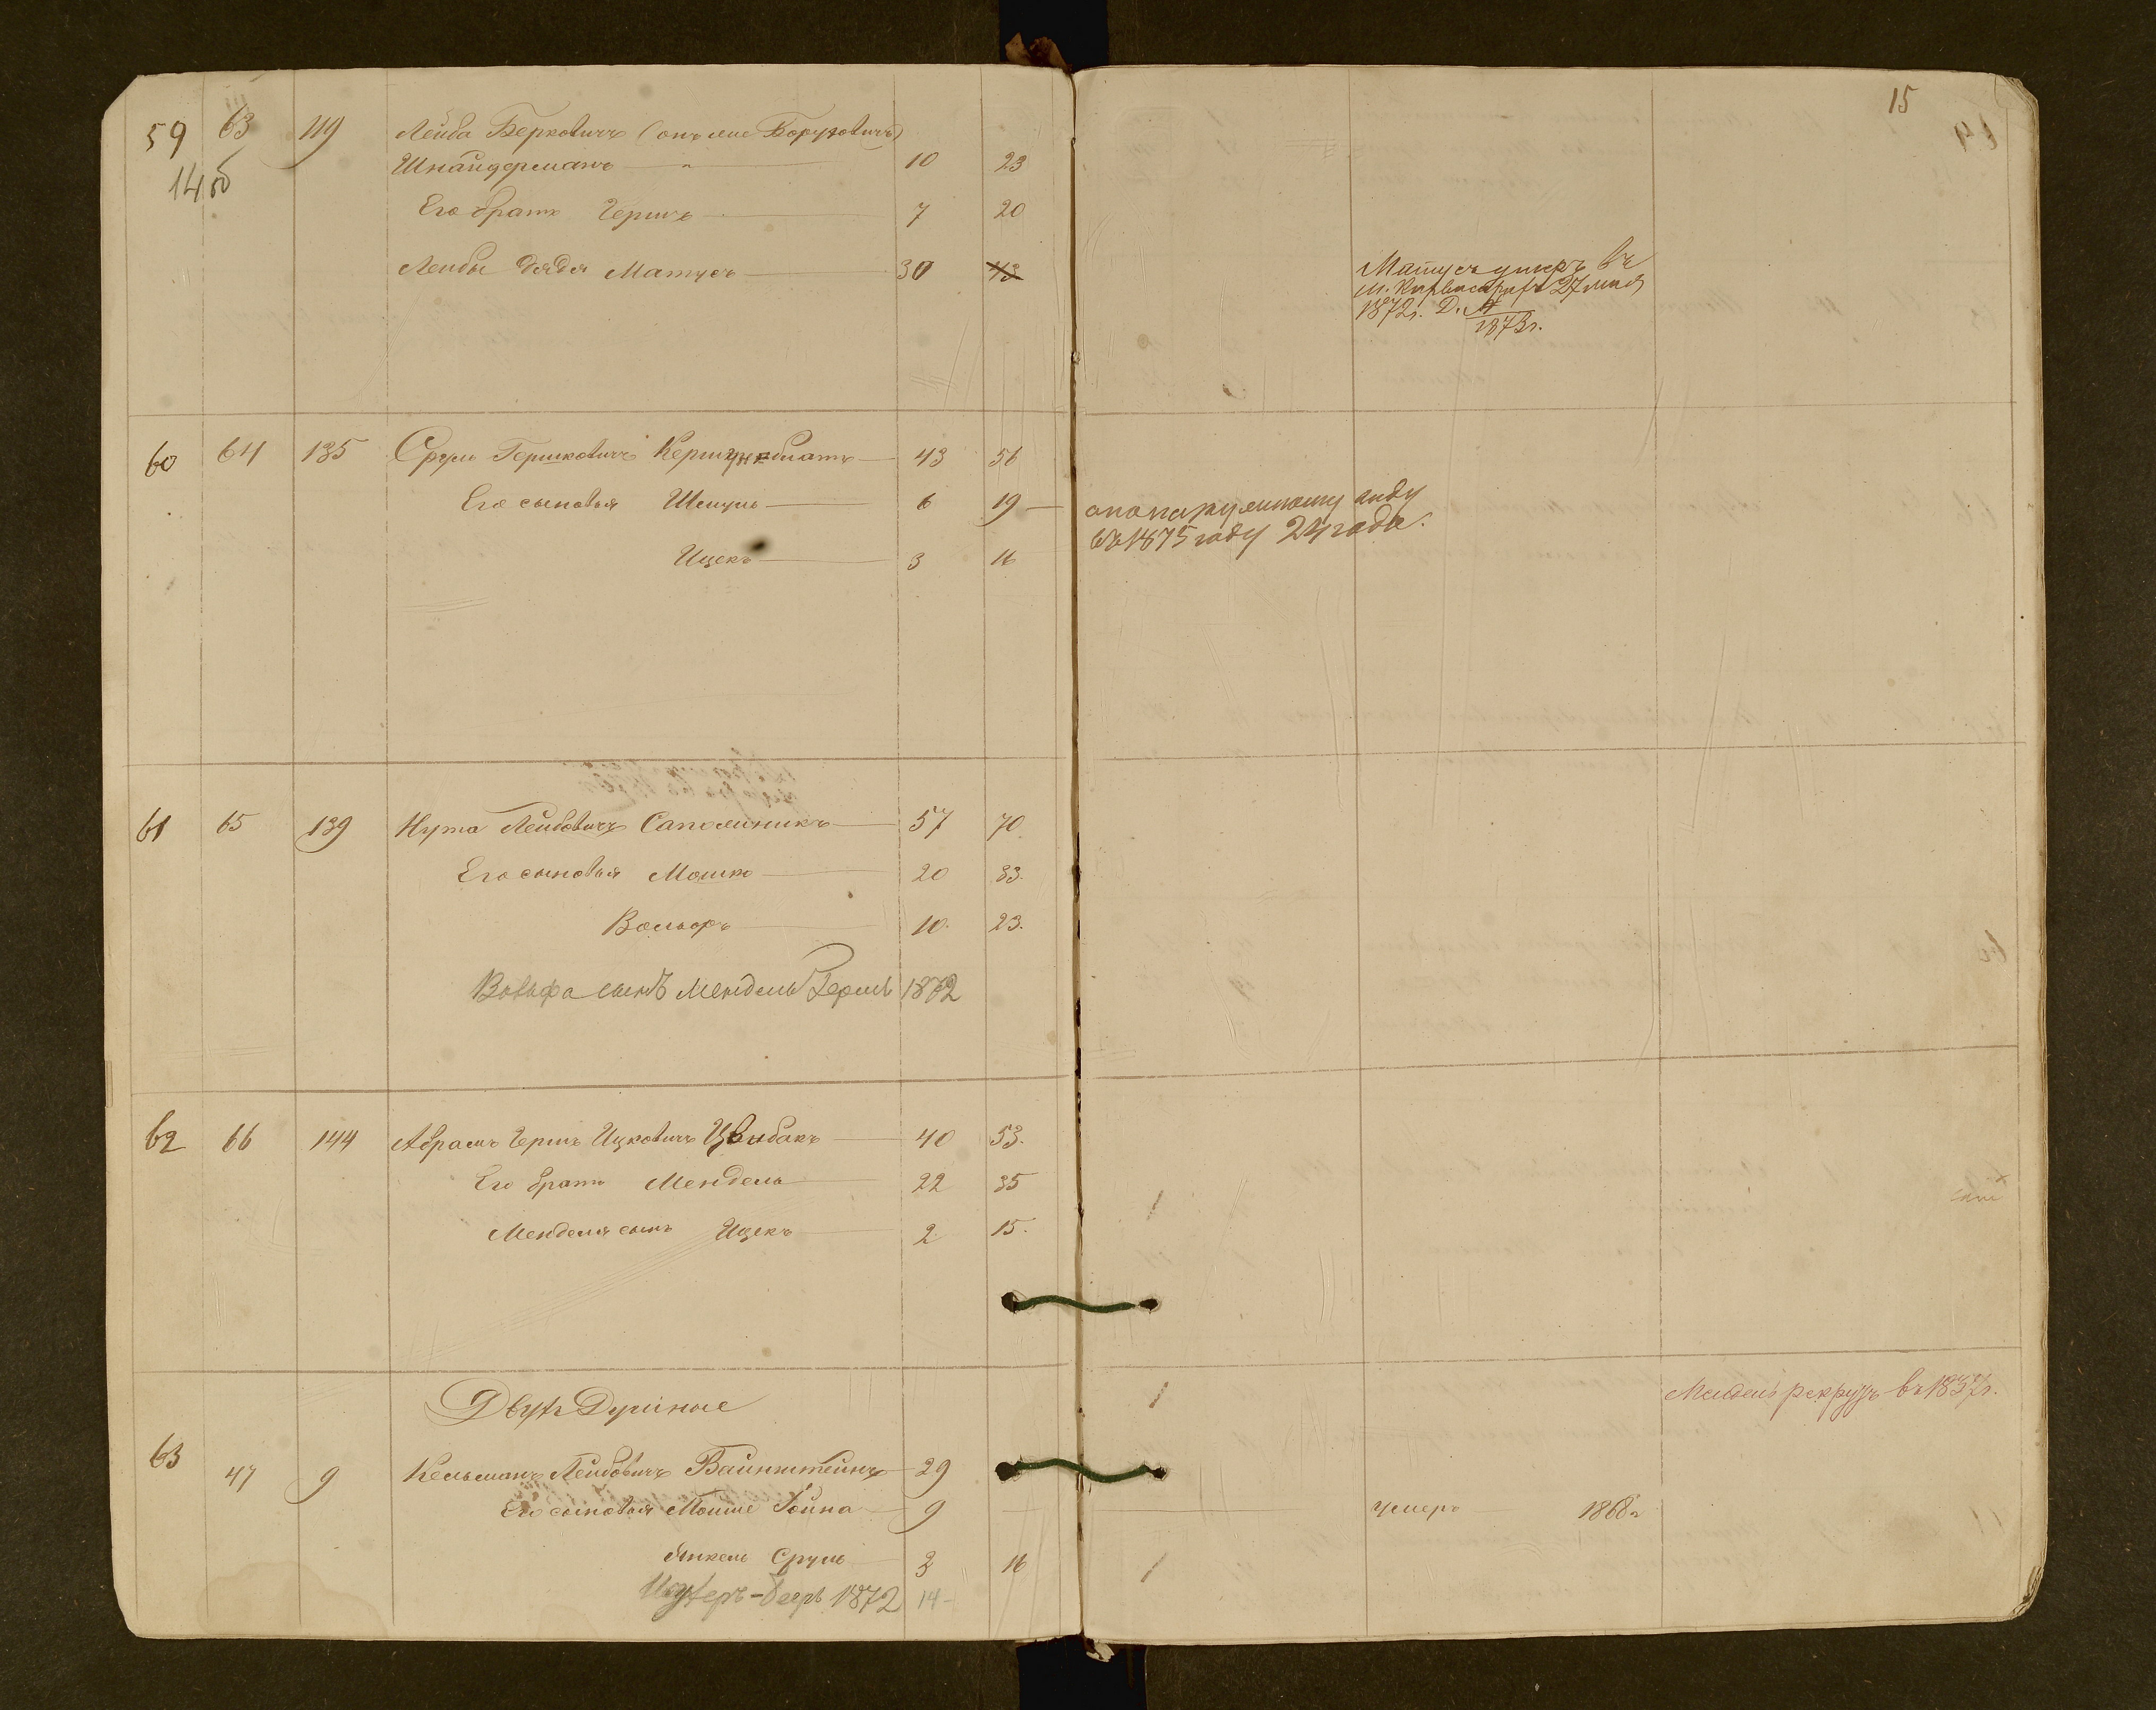 15
59 63 119 Лейба Берковичъ (онъ же Боруховичъ)
14 об
Шнайдерманъ 10 23
Его братъ Гершъ 7 20
Лейбы дядя Матусъ 30 43
Матусъ умеръ въ
27 мая
1872 г. Д. №
1873 г.
60 64 135 Сруль Гершковичъ 43 56
Его сыновья Шмуль 6 19
Ицекъ 3 16
по наружному виду
въ 1875 году 24 года.
61 65 139 Нута Лейбовичъ Сапожникъ 57 70
Его сыновья Мошко 20 33.
Вольфъ 10. 23.
Вольфа сынъ Мендель Гершъ 1872
62 66 144 Абрамъ Гершъ Ицковичъ Цвибакъ 40 53.
Его братъ Мендель 22 35
Менделя сынъ Ицекъ 2 15.
Двухъ Душные
рекрутъ въ 1857 г.
63 47 9 Кельманъ Лейбовичъ Вайнштейнъ 29
Его сыновья Мойше Іойна 9 умеръ 1868 г
Янкель Сруль 3 16
1872 14